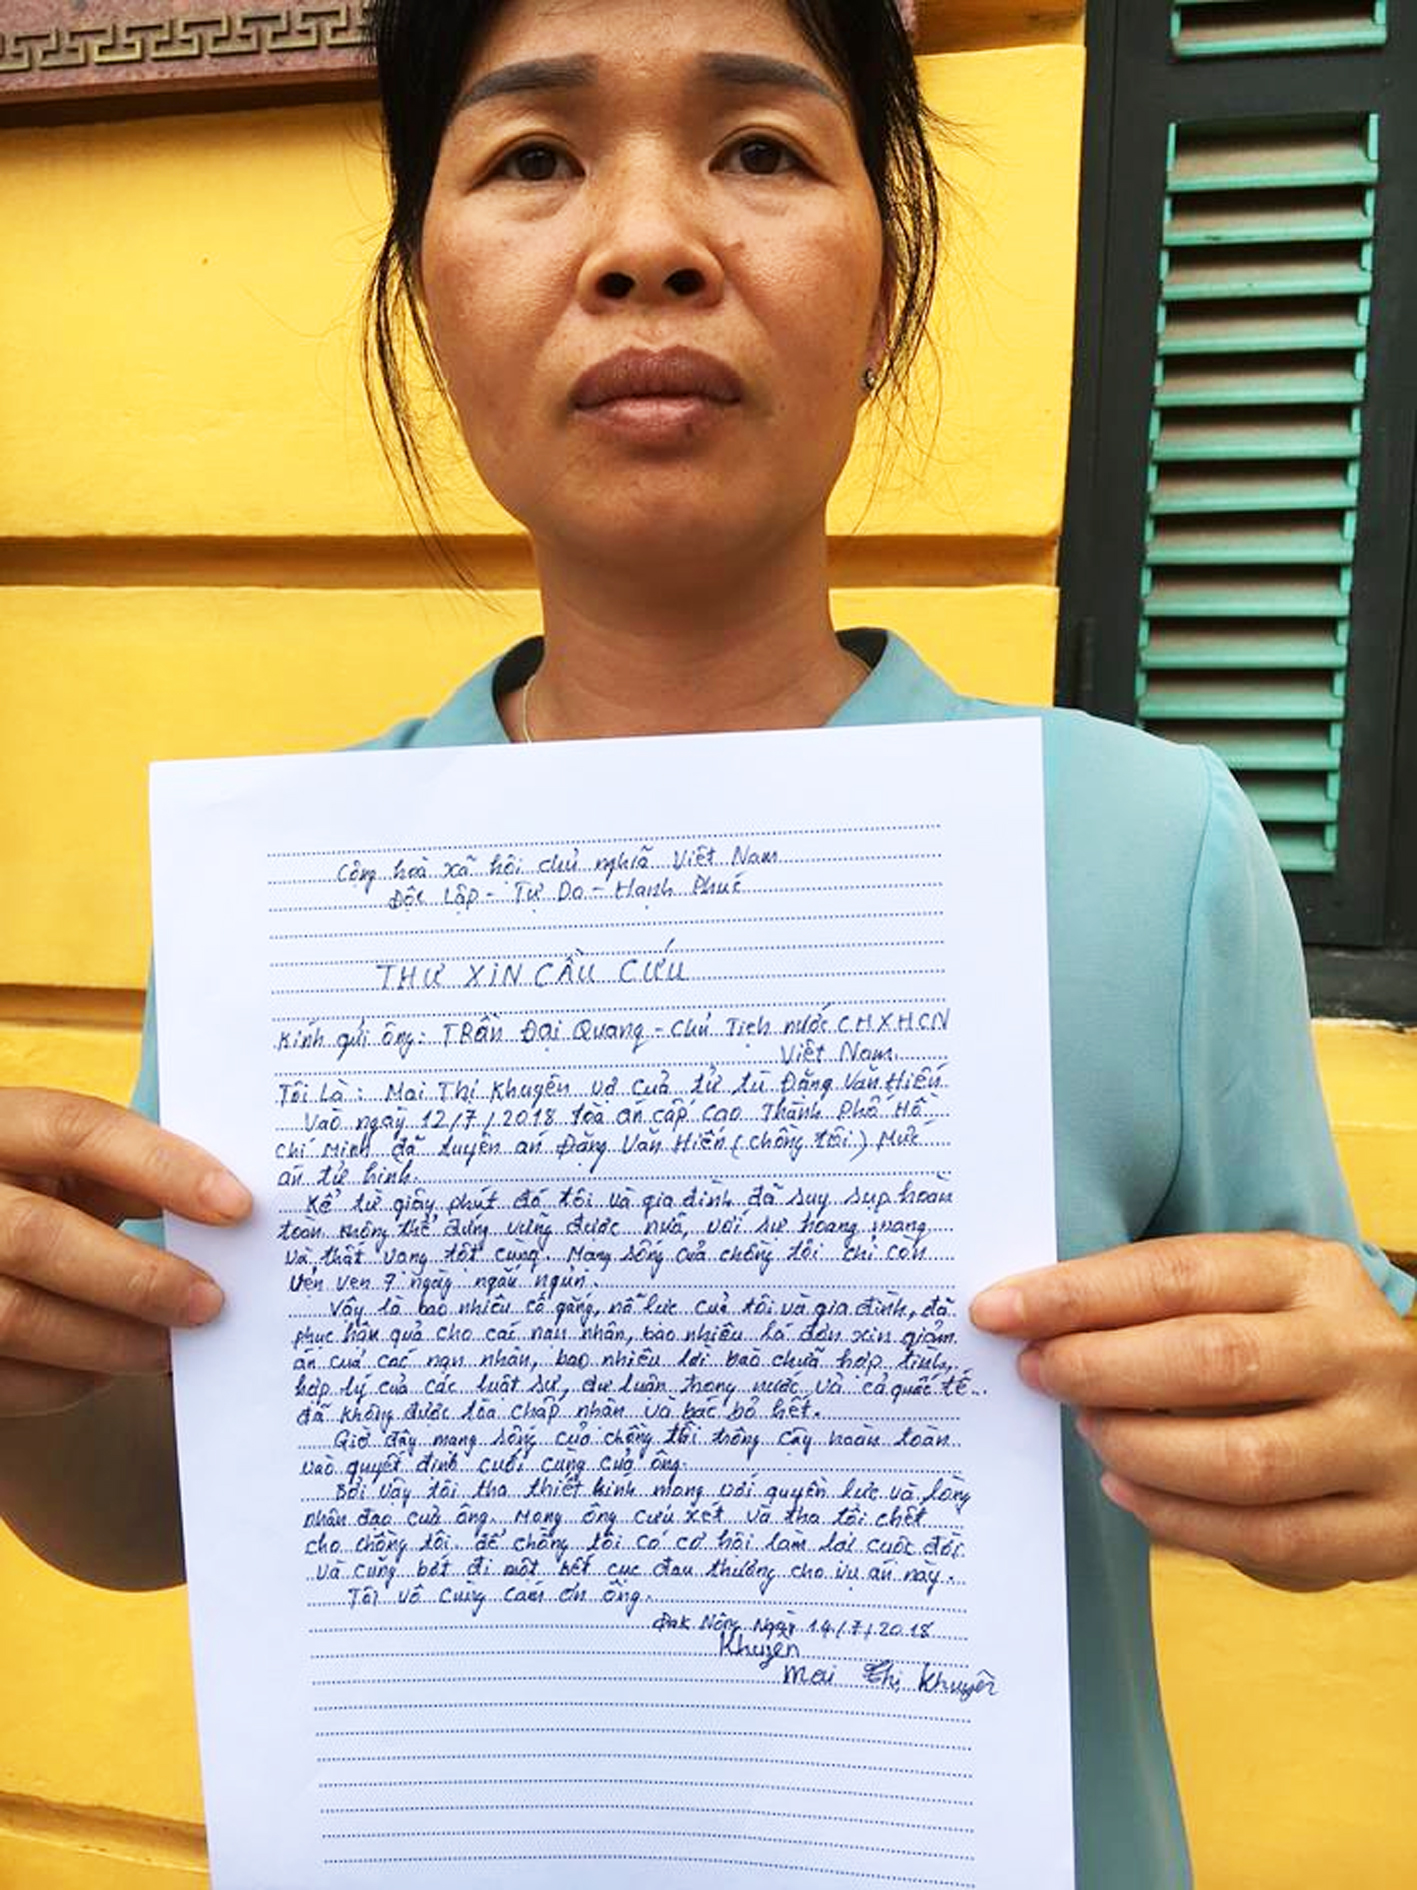 Cộng hoà xã hội chủ nghĩã Việt Nam
Độc Lập - Tự Do - Hạnh Phúc
THƯ XIN CẦU CỨU
Kính gửi ông: TRẦN Đại Quang - Chủ Tịch nước CHXHCN
Việt Nam.
Tôi Là: Mai Thị Khuyên vợ của tử tù Đặng Văn Hiến
Vào ngày 12/7/2018 toà án cấp cao Thành Phố Hồ
Chí Minh đã tuyên án Đặng Văn Hiến (chồng tôi) Mức
án tử hình.
Kể từ giây phút đó tôi và gia đình đã suy sụp hoàn
toàn không thể đứng vững được nữa, với sự hoang mang
và thất vọng tột cùng. Mạng sống của chồng tôi chỉ còn
vẻn vẹn 7 ngày ngắn ngủi.
Vậy là bao nhiêu cố gắng, nỗ lực của tôi và gia đình, đã
phục hậu quả cho các nạn nhân, bao nhiêu lá đơn xin giảm
án của các nạn nhân, bao nhiêu lời bào chữa hợp tình,
hợp lý của các luật sư, dư luận trong nước và cả quốc tế..
đã không được tòa chấp nhận và bác bỏ hết.
Giờ đây mạng sống của chồng tôi trông cậy hoàn toàn
vào quyết định cuối cùng của ông.
Bởi vậy tôi tha thiết kính mong với quyền lực và lòng
nhân đạo của ông. Mong ông cứu xét và tha tội chết
cho chồng tôi. để chồng tôi có cơ hội làm lại cuộc đời
và cũng bớt đi một kết cục đau thương cho vụ án này.
Tôi vô cùng cám ơn ông.
Đak Nông Ngày 14/7/2018
Khuyên
Mai Thị Khuyên